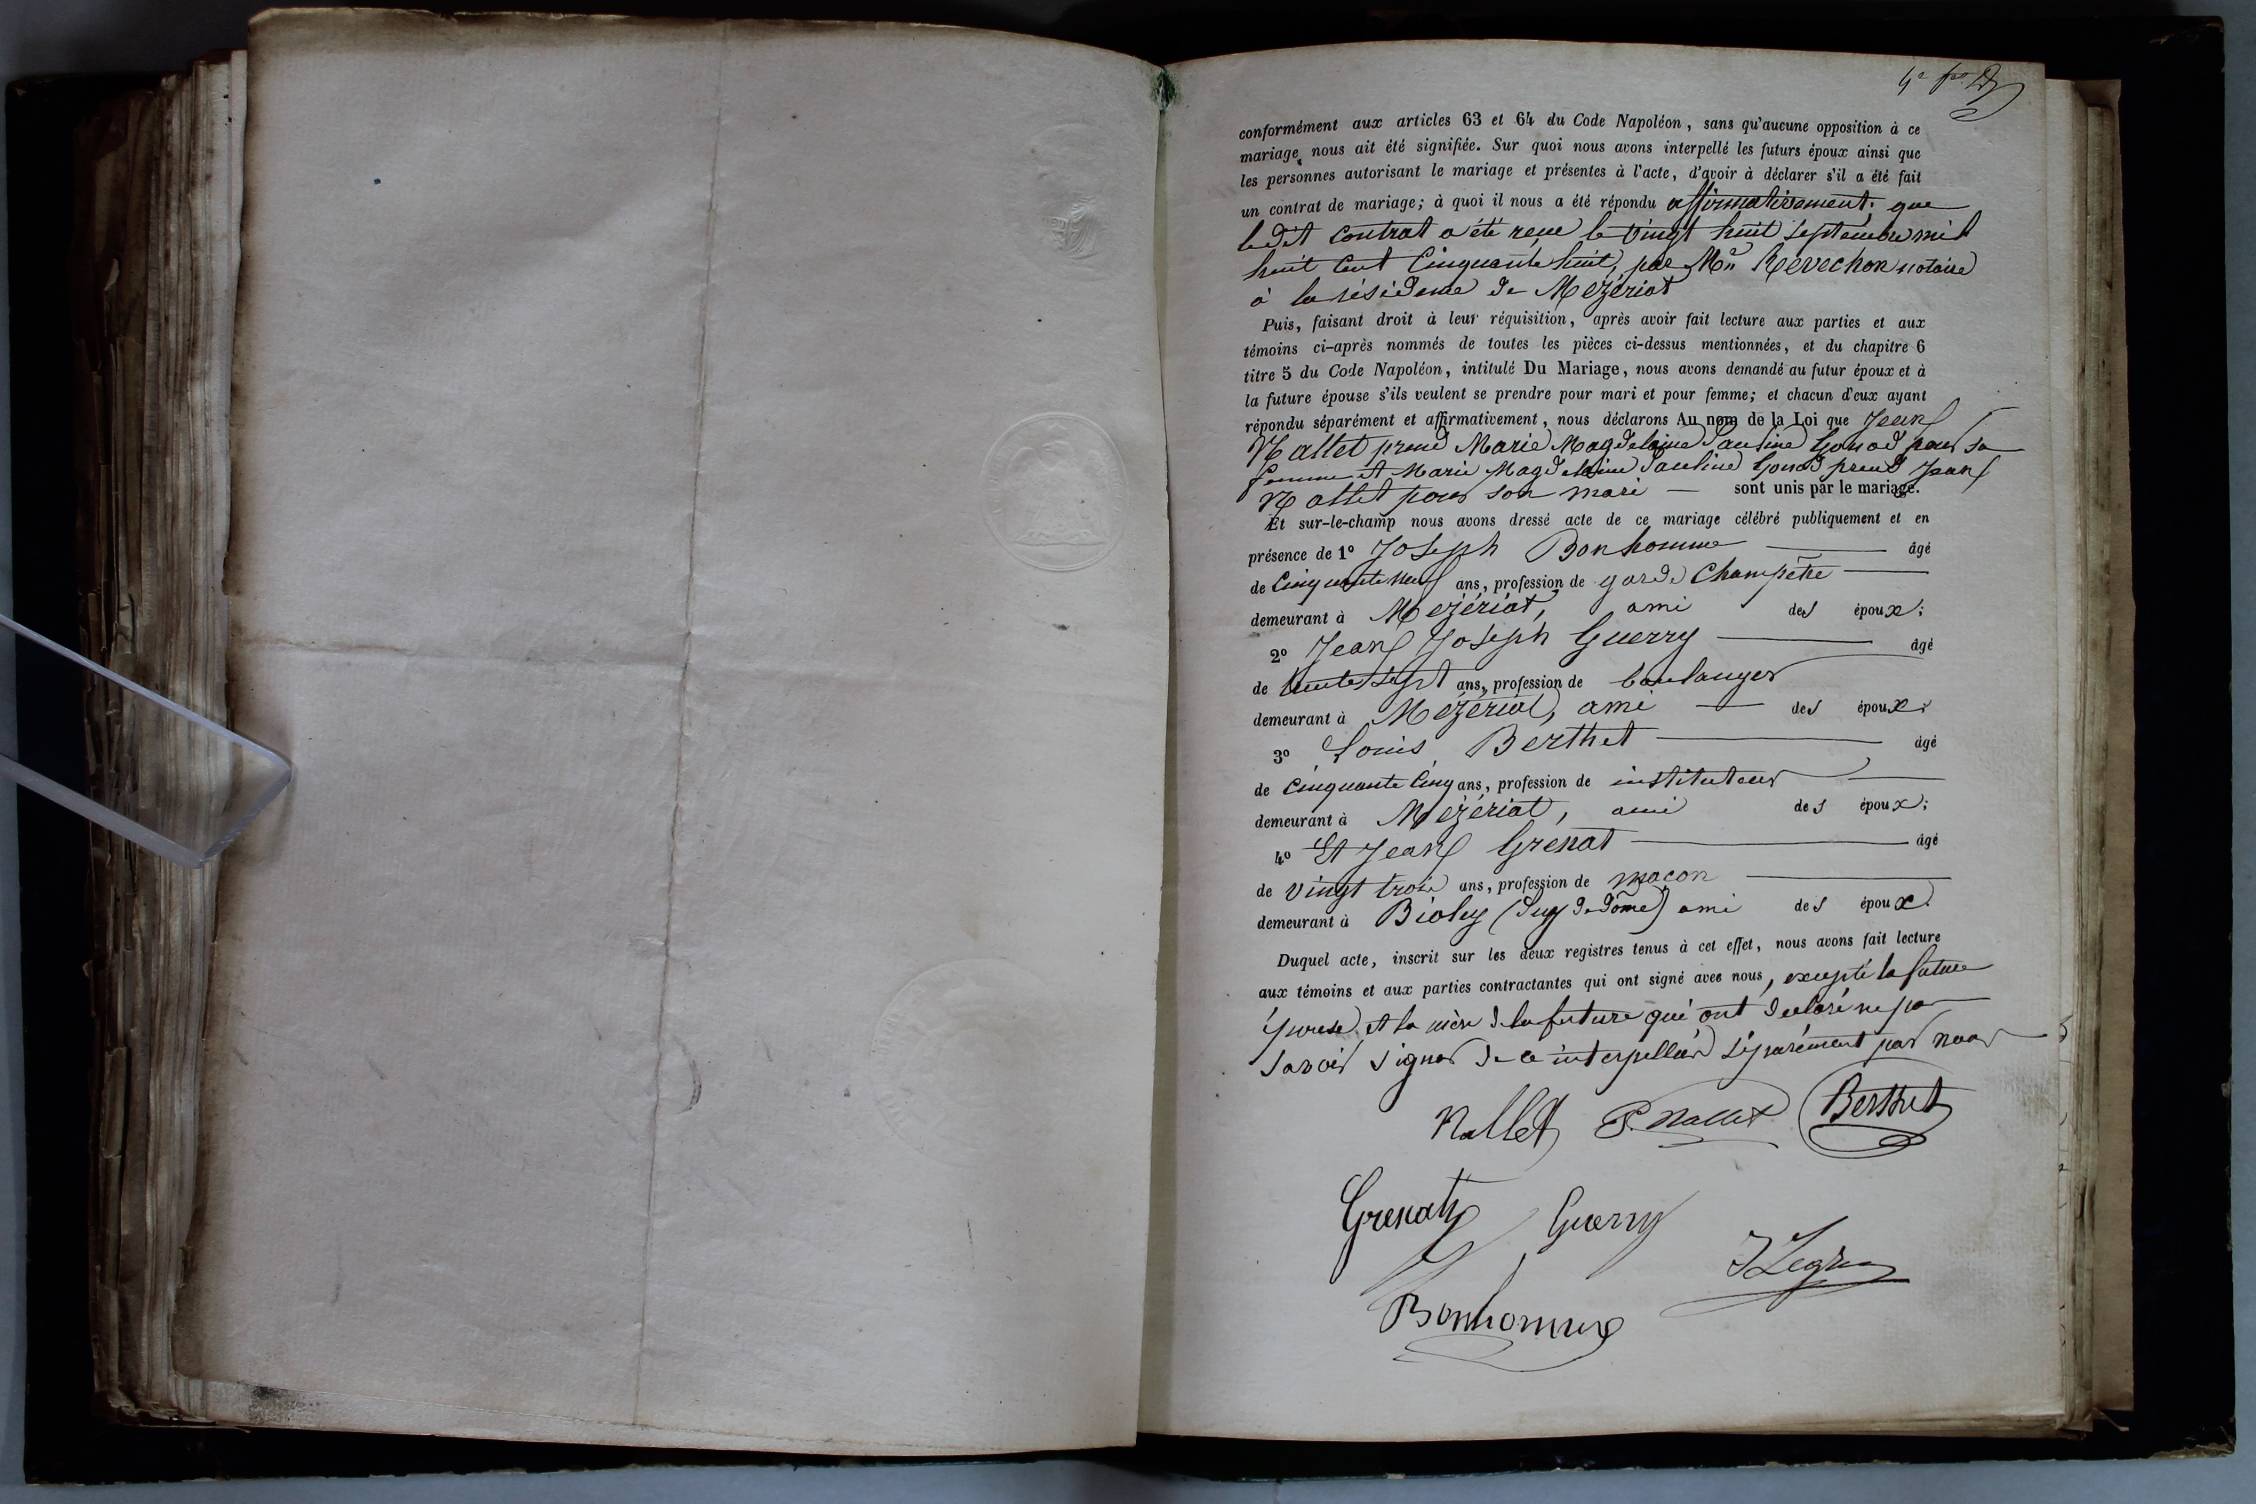 conformément aux articles 63 et 64 du Code Napoléon, sans qu'aucune opposition à ce
mariage nous ait été signifiée. Sur quoi nous avons interpellé les futurs époux ainsi que
les personnes autorisant le mariage et présentes à l'acte, d'avoir à déclarer s'il a été fait
un contrat de mariage; à quoi il nous a été répondu affirmativement. que
le dit contrat a été reçu le vingt huit septembre mil
huit cent cinquante huit, par Me Revechon notaire
à la résidence de Mézériat
Puis, faisant droit à leur réquisition, après avoir fait lecture aux parties et aux
témoins ci-après nommés de toutes les pièces ci-dessus mentionnées, et du chapitre 6
titre 5 du Code Napoléon, intitulé Du Mariage, nous avons demandé au futur époux et à
la future épouse s'ils veulent se prendre pour mari et pour femme; et chacun d'eux ayant
répondu séparément et affirmativement, nous déclarons Au nom de la Loi que Jean
Nallet prend Marie Magdelaine Pauline Gonod pour sa
femme et Marie Magdelaine Pauline Gonod prend Jean
Nallet pour son mari — sont unis par le mariage.
Et sur-le-champ nous avons dressé acte de ce mariage célébré publiquement et en
présence de 1º Joseph Bonhomme — âgé
de cinquante neuf ans, profession de garde champêtre —
demeurant à Mézériat, ami des époux;
2º Jean Joseph Guerry — âgé
de trente sept ans, profession de boulanger
demeurant à Mézériat, ami — des époux;
3º Louis Berthet — âgé
de cinquante cinq ans, profession de instituteur —
demeurant à Mézériat, ami des époux;
4º Et Jean Grenat — âgé
de vingt trois ans, profession de maçon —
demeurant à Bioley (Puy de dôme) ami des époux.
Duquel acte, inscrit sur les deux registres tenus à cet effet, nous avons fait lecture
aux témoins et aux parties contractantes qui ont signé avec nous, excepté la future
épouse, et la mère de la future qui ont déclaré ne pas
savoir signer de ce interpellées séparément par nous
Nallet P. Nallet Berthet
Grenat Guerry
Bonhomme